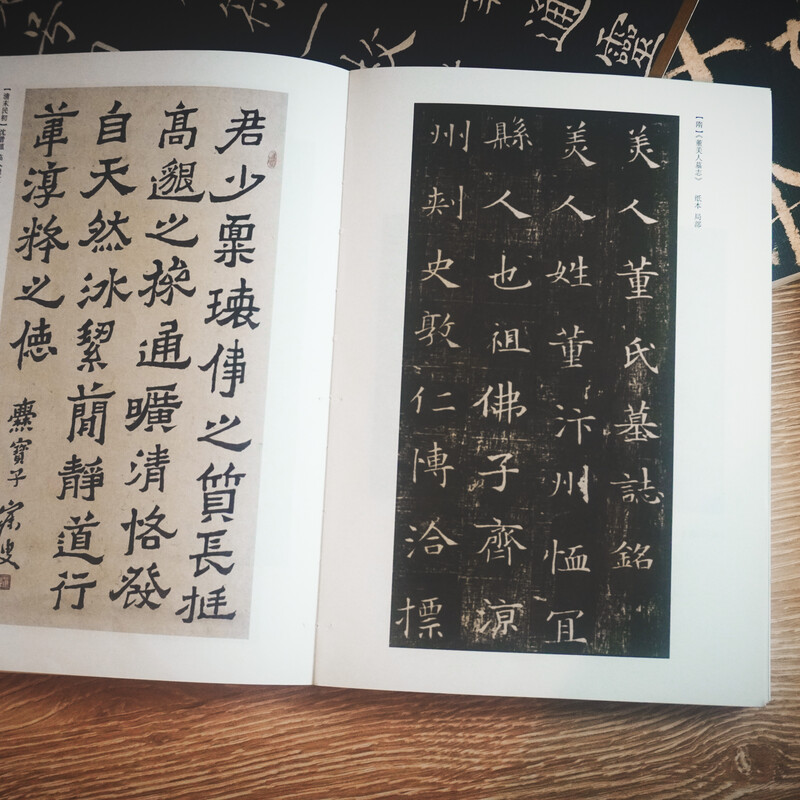 通靈
【隋】《董美人墓志》 纸本 局部
美人董氏墓誌銘
美人姓董汴州恤冝
縣人也祖佛子齊涼
州刾史敦仁愽洽摽
君少稟瓌偉之質長挺
高邈之操通曠清恪發
自天然冰絜簡靜道行
葦淳粹之德
爨寶子 寐叟
【清末民初】沈曾植